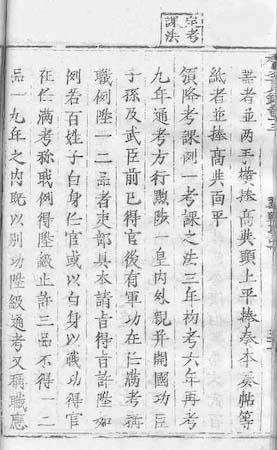 定考
課法
者並两手横捧高與頭上平捧奏本奏帖等
紙者並捧高與面平
頒降考課例一考課之法三年初考六年再考
九年通考方行黜陟一皇内外親并開國功臣
子孫及武臣前已得官後有軍功在任滿考稱
職例陞一二品者吏部具本請旨得旨許陞如
例若百姓子白身任官或以白身以職功得官
在任滿考稱職例得陞級止許三品不得一二
品一九年之内既以別功陞級通考又稱職應